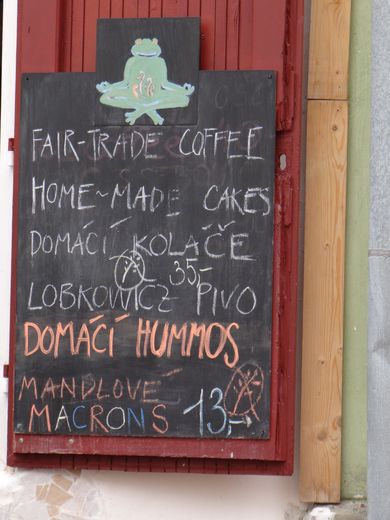 FAIR-TRADE COFFEE
HOME~MADE CAKES
DOMÁCÍ KOLAČĚ
35,-
LOBKOWICZ PIVO
DOMÁCÍ HUMMOS
MANDLOVÉ
MACRONS 13,-